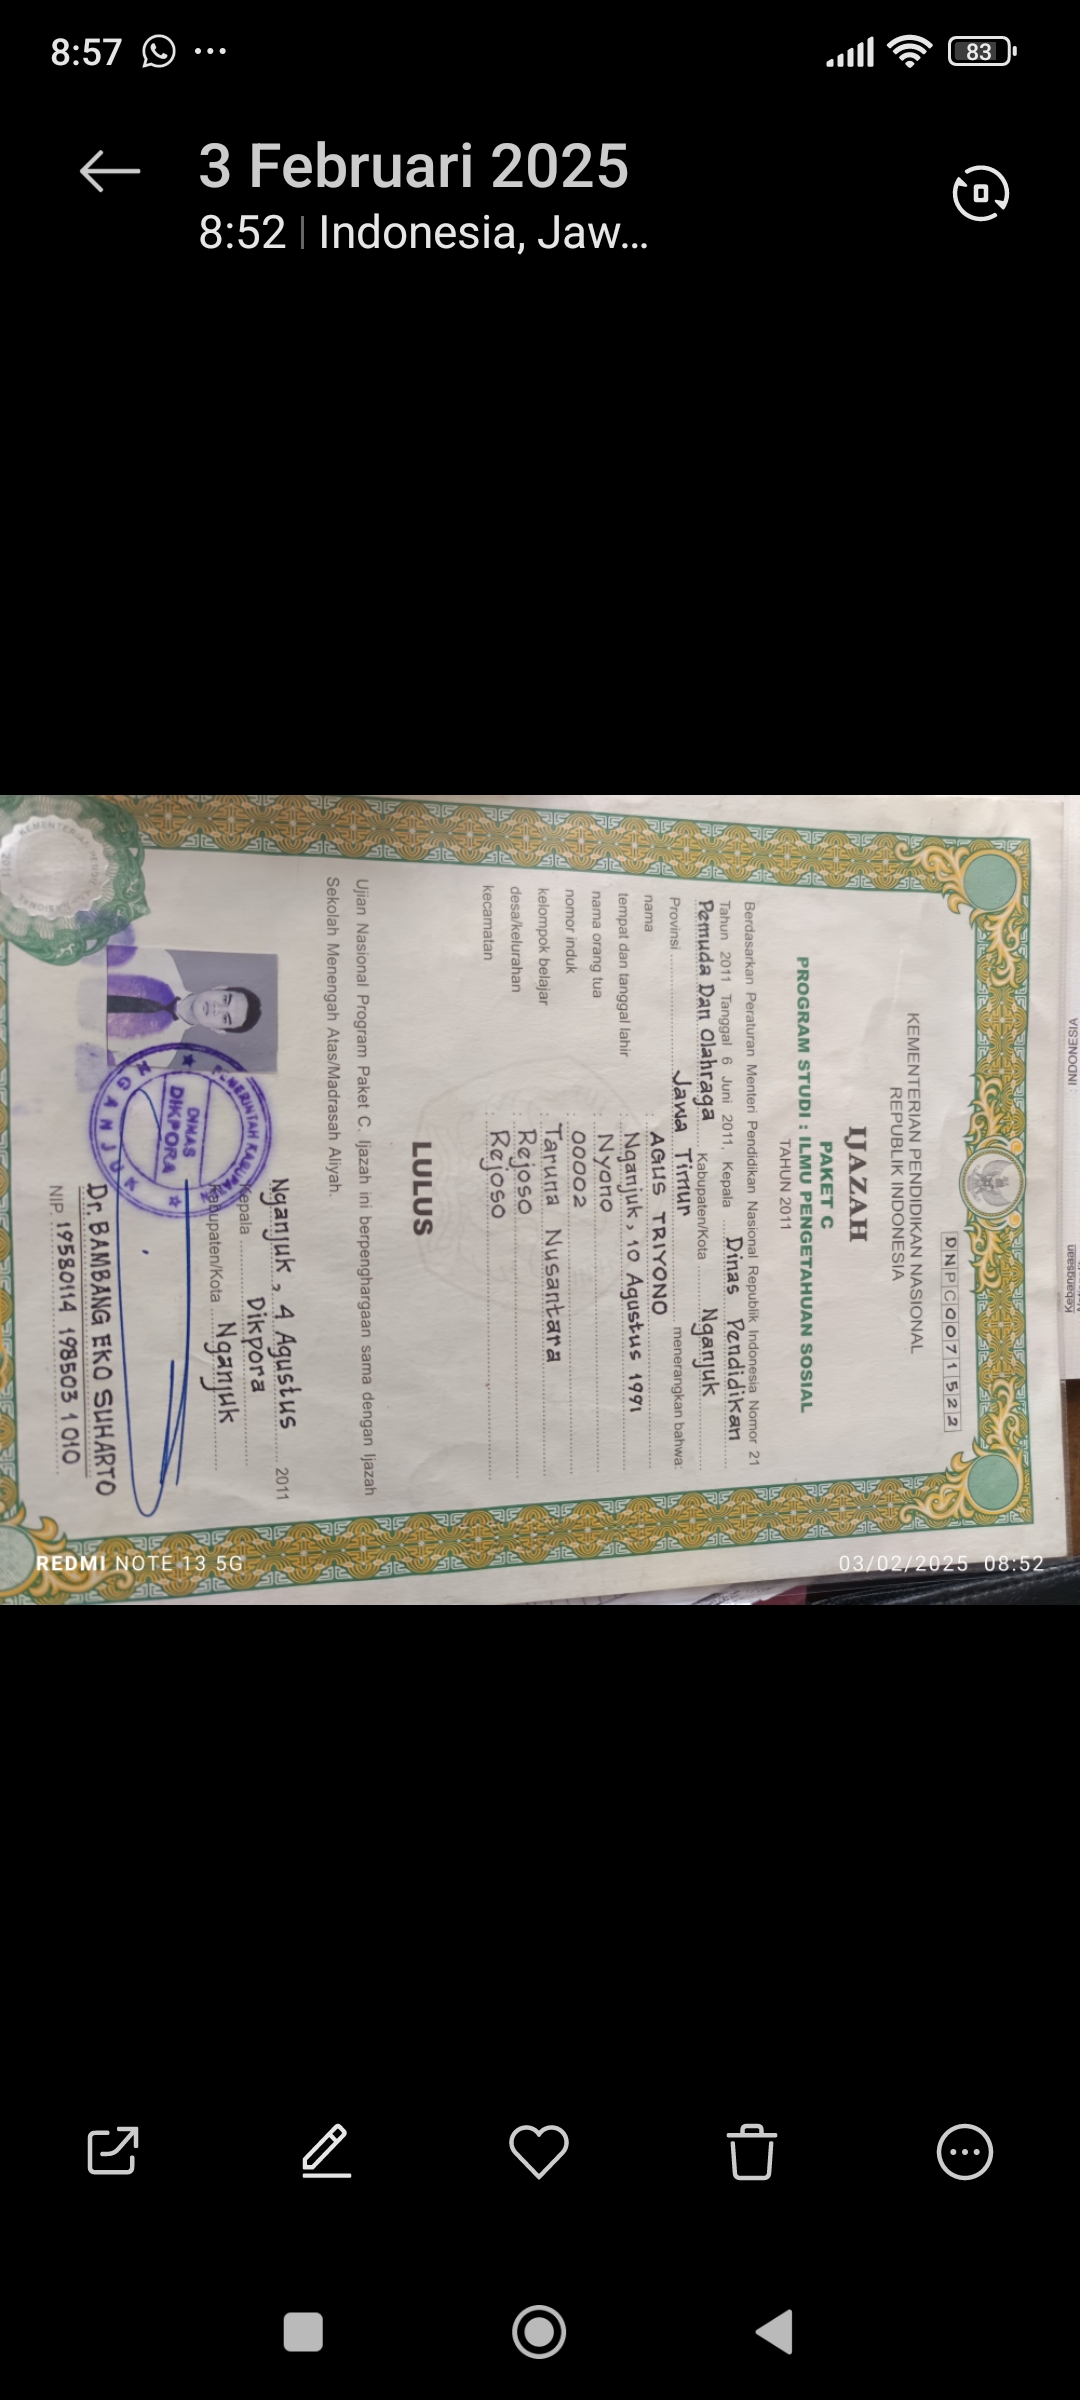 8:57
83
3 Februari 2025
8:52 | Indonesia, Jaw...
INDONESIA
DNPC0071522
KEMENTERIAN PENDIDIKAN NASIONAL
REPUBLIK INDONESIA
IJAZAH
PAKET C
PROGRAM STUDI : ILMU PENGETAHUAN SOSIAL
TAHUN 2011
Berdasarkan Peraturan Menteri Pendidikan Nasional Republik Indonesia Nomor 21
Tahun 2011 Tanggal 6 Juni 2011, Kepala Dinas Pendidikan
Pemuda Dan Olahraga Kabupaten/Kota Nganjuk
Provinsi Jawa Timur menerangkan bahwa:
nama : AGUS TRIYONO
tempat dan tanggal lahir : Nganjuk, 10 Agustus 1991
nama orang tua : Nyono
nomor induk : 00002
kelompok belajar : Taruna Nusantara
desa/kelurahan : Rejoso
kecamatan : Rejoso
LULUS
Ujian Nasional Program Paket C. Ijazah ini berpenghargaan sama dengan Ijazah
Sekolah Menengah Atas/Madrasah Aliyah.
Nganjuk, 4 Agustus 2011
Kepala Dikpora
Kabupaten/Kota Nganjuk
PEMERINTAH KABUPATEN
DINAS
DIKPORA
NGANJUK
Dr. BAMBANG EKO SUHARTO
NIP. 19580114 198503 1 010
REDMI NOTE 13 5G
03/02/2025 08:52